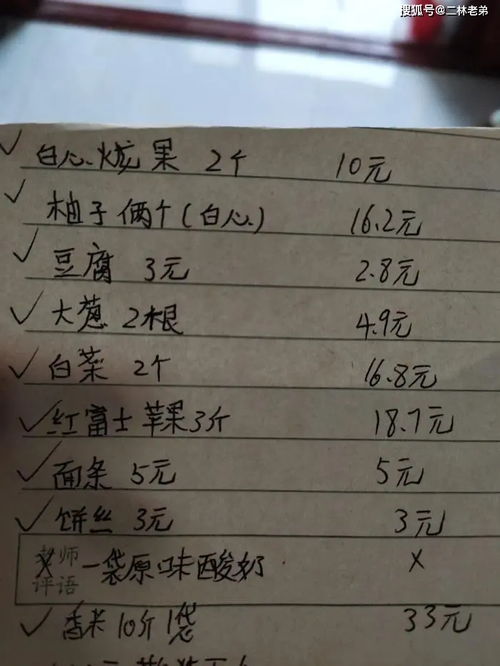 搜狐号@二林老弟
✓ 白心火龙果 2个 10元
✓ 柚子俩个(白心) 16.2元
✓ 豆腐 3元 2.8元
✓ 大葱 2根 4.9元
✓ 白菜 2个 16.8元
✓ 红富士苹果3斤 18.7元
✓ 面条 5元 5元
✓ 饼丝 3元 3元
老师评语 一袋原味酸奶 ×
✓ 香米10斤1袋 33元